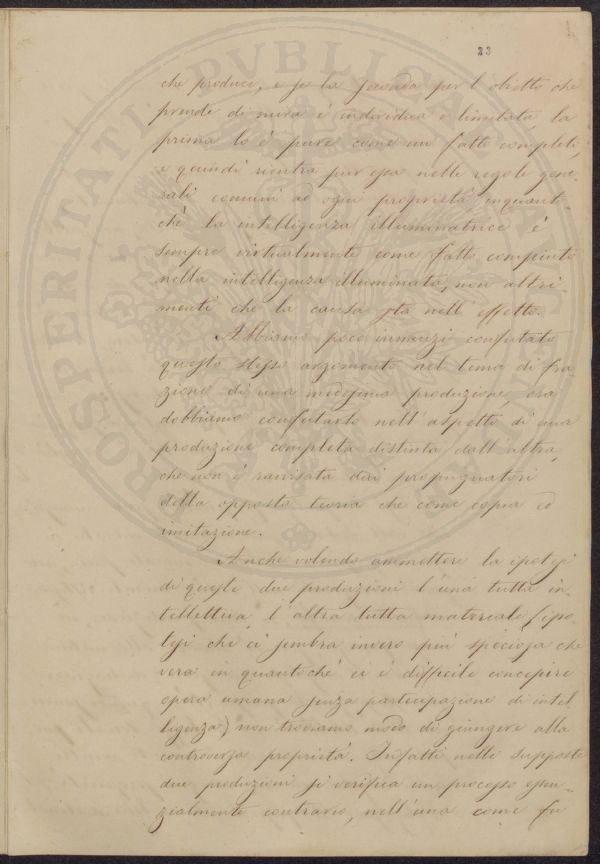 23
che produce, e se la seconda per l'obietto che
prende di mira è individua e limitata, la
prima lo è pure come un fatto completo,
e quindi rientra pur essa nelle regole gene-
rali comuni ad ogni proprietà inquant-
chè la intelligenza illuminatrice è
sempre virtualmente come fatto compiuto
nella intelligenza illuminata, non altri-
menti che la causa sta nell'effetto.
Abbiamo poco innanzi confutato
questo stesso argomento nel tema di fra-
zione di una medesima produzione, ora
dobbiamo confutarlo nell'aspetto di una
produzione completa distinta dall'altra,
che non è ravvisata dai propugnatori
della opposta teoria che come copia ed
imitazione.
Anche volendo ammettere la ipotesi
di queste due produzioni l'una tutta in-
tellettiva l'altra tutta materiale (ipo-
tesi che ci sembra invero più speciosa che
vera in quantochè ci è difficile concepire
opera umana senza partecipazione di intel-
ligenza) non troviamo modo di giungere alla
controversa proprietà. Infatti nelle supposte
due produzioni si verifica un processo essen-
zialmente contrario, nell'una come fu
PROSPERITATI PVBLICAE